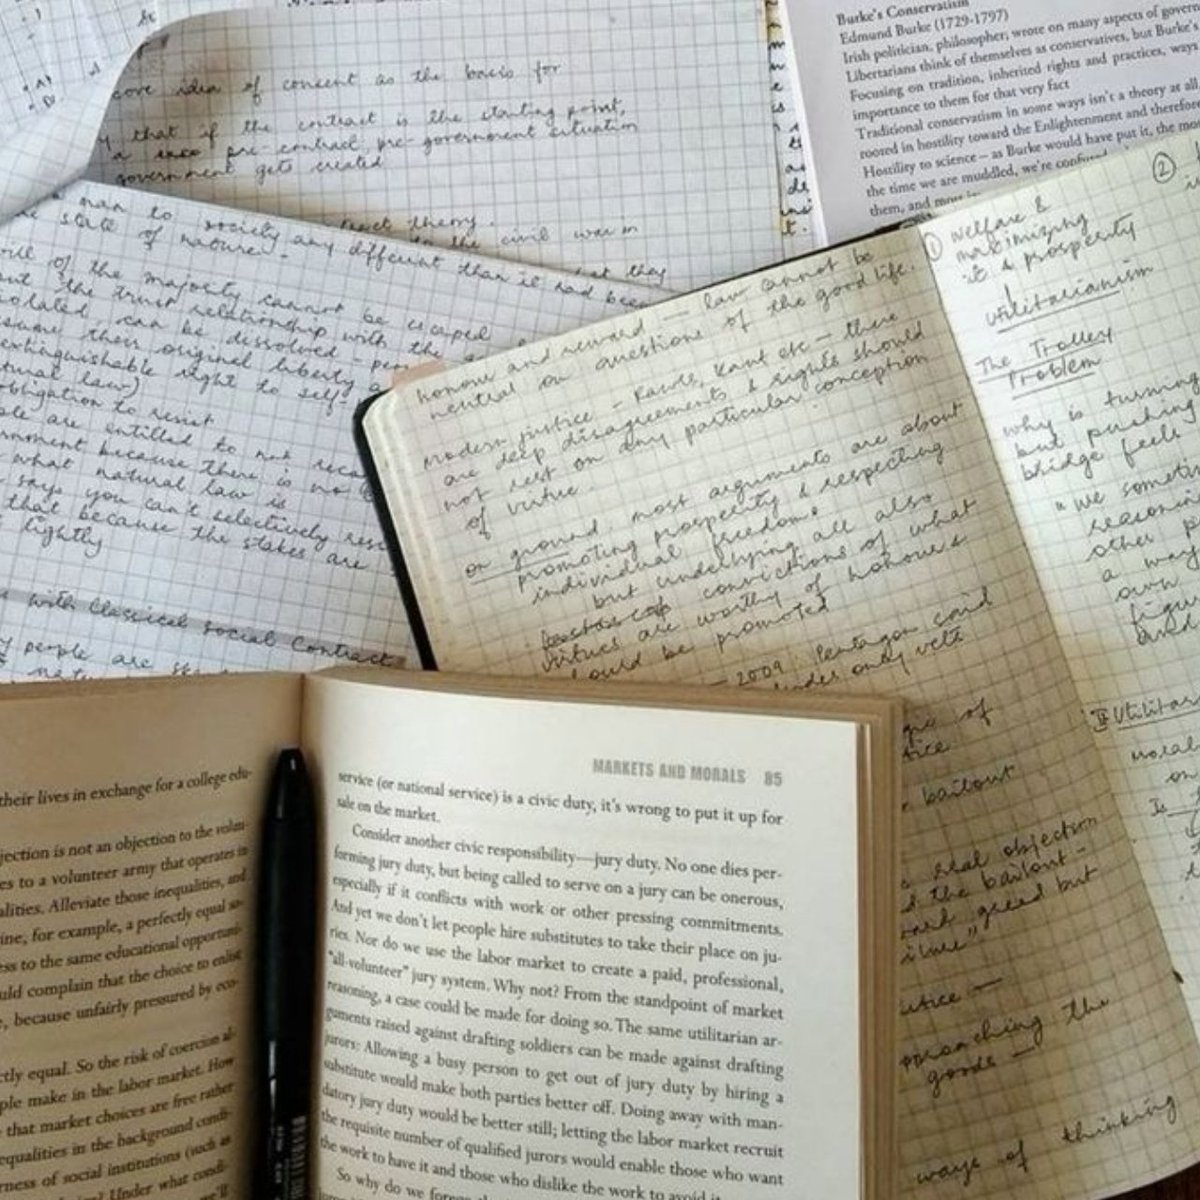 core idea of consent as the basis for
y that if the contract is the starting point,
a pre-contract, pre-government situation
government gets created
theory.
the civil war in
Burke's Conservatism
Edmund Burke (1729-1797)
Irish politician, philosopher; wrote on many aspects of govern
Libertarians think of themselves as conservatives, but Burke's
Focusing on tradition, inherited rights and practices, ways
importance to them for that very fact
Traditional conservatism in some ways isn't a theory at all
rooted in hostility toward the Enlightenment and therefor
Hostility to science – as Burke would have put it, the mo
the time we are muddled, we're confused
them, and
man to society any different than it had been
state of nature.
of the majority cannot be escaped
the trust relationship with the
can be dissolved –
their original liberty
extinguishable right to self-
law)
obligation to resist
are entitled to not
because there is no
what natural law is
says you can't selectively
that because the stakes are
lightly
with Classical Social Contract
people are
honour and reward — law cannot be
neutral on questions of the good life.
modern justice – Rawls, Kant etc – there
are deep disagreements & rights should
not rest on any particular conception
of virtue.
on ground, most arguments are about
promoting prosperity & respecting
individual freedoms
but underlying all also
convictions of what
virtues are worthy of honour &
should be promoted
2009: Pentagon said
only vets
of
bailout
real objection
the bailout –
greed but
approaching the
goods —
ways of thinking
② 
① welfare &
maximizing
it & prosperity
utilitarianism
The Trolley
Problem
why is turning
but pushing
bridge feels
"we someti
reasonin
other p
a way
own
figu
and
II Utilitar
moral
on
Is
their lives in exchange for a college edu-
jection is not an objection to the volun-
es to a volunteer army that operates in
alities. Alleviate those inequalities, and
ine, for example, a perfectly equal so-
ess to the same educational opportuni-
uld complain that the choice to enlist
, because unfairly pressured by eco-
ctly equal. So the risk of coercion al-
ple make in the labor market. How
that market choices are free rather
equalities in the background condi-
rness of social institutions (such as
Under what condi-
MARKETS AND MORALS 85
service (or national service) is a civic duty, it's wrong to put it up for
sale on the market.
Consider another civic responsibility—jury duty. No one dies per-
forming jury duty, but being called to serve on a jury can be onerous,
especially if it conflicts with work or other pressing commitments.
And yet we don't let people hire substitutes to take their place on ju-
ries. Nor do we use the labor market to create a paid, professional,
"all-volunteer" jury system. Why not? From the standpoint of market
reasoning, a case could be made for doing so. The same utilitarian ar-
guments raised against drafting soldiers can be made against drafting
jurors: Allowing a busy person to get out of jury duty by hiring a
substitute would make both parties better off. Doing away with man-
datory jury duty would be better still; letting the labor market recruit
the requisite number of qualified jurors would enable those who want
the work to have it and those who dislike the work to avoid it.
So why do we